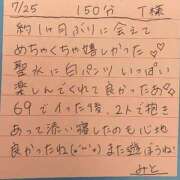 7/25 150分 T様
約1ヶ月ぶりに会えて
めちゃくちゃ嬉しかった♡♡
聖水に白パンツいっぱい
楽しんでくれて良かったあ
69でイった後、2人で抱き
あって添い寝したのも心地
良かったね(*´˘`*)また遊ぼうね!
みと